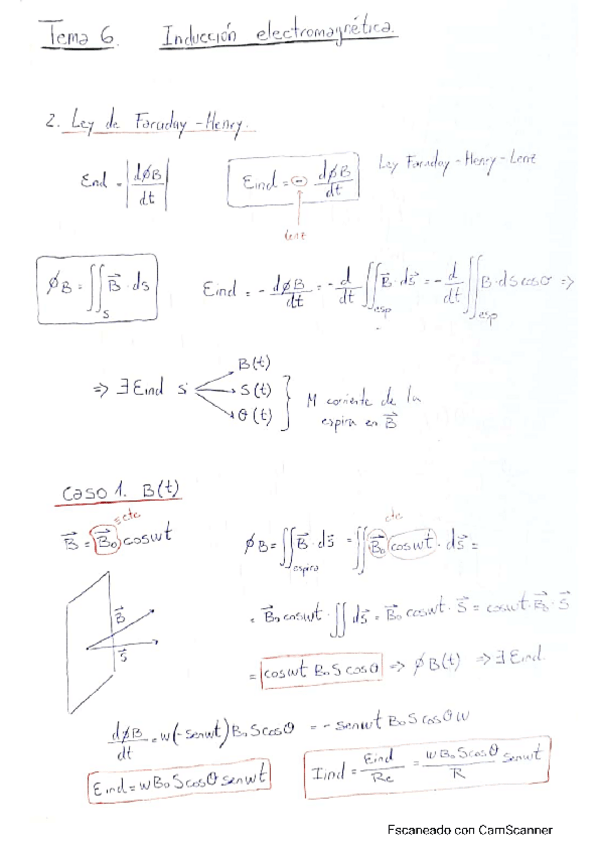 Tema 6. Inducción electromagnética.
2. Ley de Faraday-Henry.
Eind = |dϕB/dt|
Eind = - dϕB/dt
Ley Faraday-Henry-Lenz
Lenz
ϕB = ∬s B⃗ · ds
Eind = - dϕB/dt = - d/dt ∬esp B⃗ · ds⃗ = - d/dt ∬esp B · ds cosσ =>
=> ∃ Eind si
B(t)
S(t)
Θ(t)
de la
espira en B⃗
Caso 1. B(t)
= cte
B⃗ = B⃗o coswt
cte
ϕB = ∬espira B⃗ · ds⃗ = ∬ B⃗o coswt · ds⃗ =
= B⃗o coswt · ∬ ds⃗ = B⃗o coswt · S⃗ = coswt · B⃗o · S⃗
B⃗
S⃗
= coswt Bo S cosθ => ϕB(t) => ∃ Eind.
dϕB/dt = w(-senwt) Bo S cosθ = - senwt Bo S cosθ w
Eind = w Bo S cosθ senwt
Iind = Eind/Re = w Bo S cosθ/R senwt
Escaneado con CamScanner